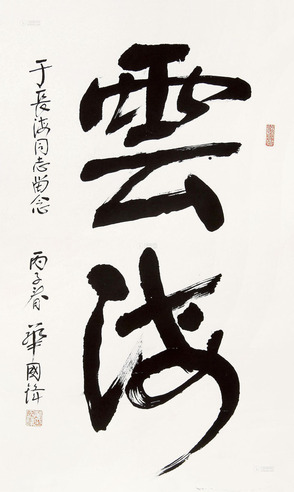 雲海
于長海同志留念
丙子春 華國鋒